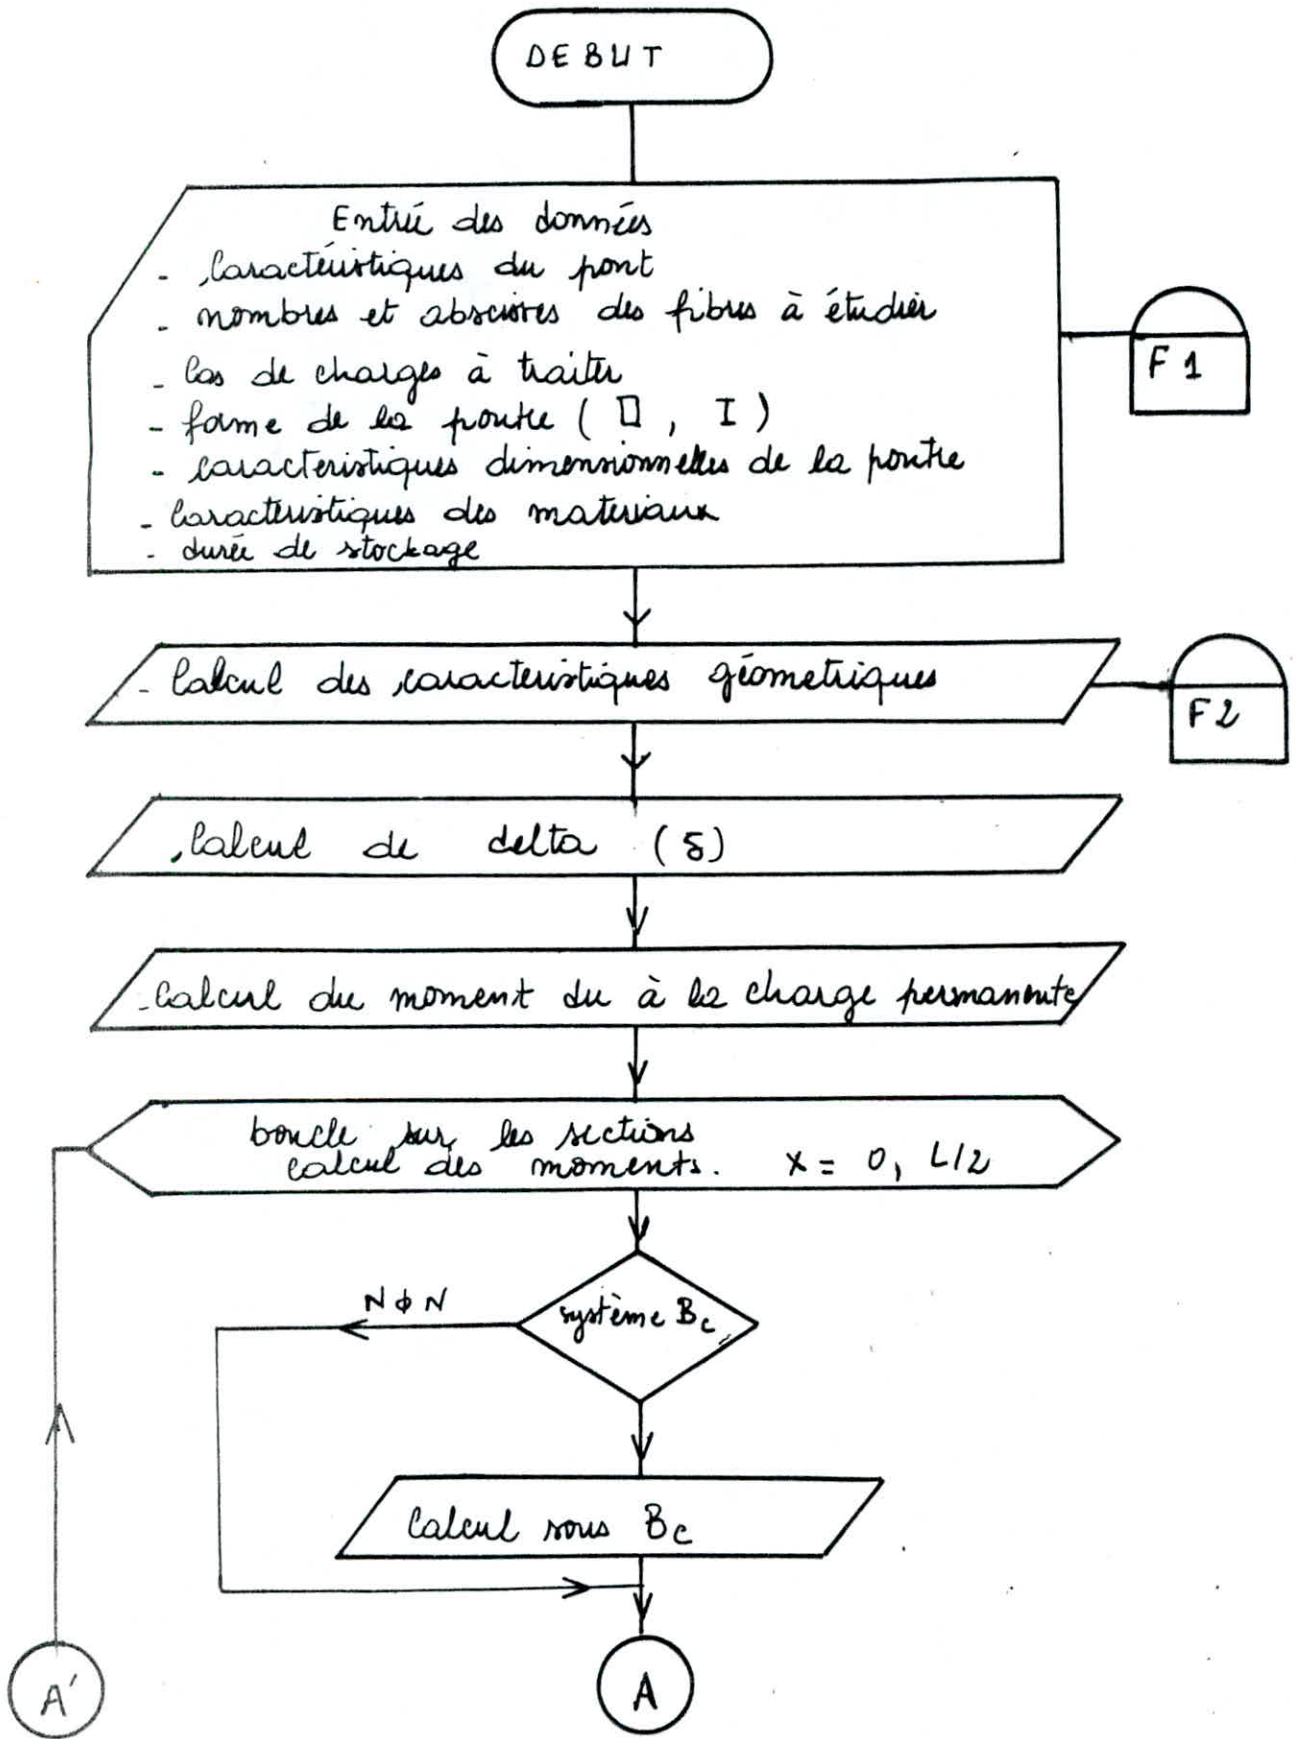 DEBUT
Entrée des données
- Caractéristiques du pont
- nombres et abscisses des fibres à étudier
- Cas de charges à traiter
- forme de la poutre ( ▯ , I )
- caracteristiques dimensionnelles de la poutre
- Caracteristiques des materiaux
- durée de stockage
F1
- Calcul des caracteristiques géometriques
F2
Calcul de delta (δ)
- Calcul du moment du à la charge permanente
boucle sur les sections
calcul des moments. x = 0, L/2
NϕN
système Bc
Calcul sous Bc
A'
A